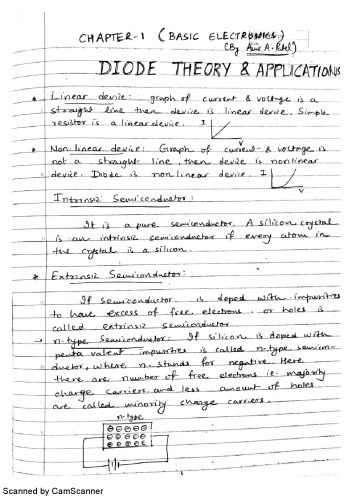 CHAPTER-1 (BASIC ELECTRONICS)
(By A-Patel)
DIODE THEORY & APPLICATIONS
* Linear device: graph of current & voltage is a
straight line then device is linear device. Simple
resistor is a linear device. I
V
* Non-linear device: Graph of current & voltage is
not a straight line, then device is nonlinear
device. Diode is non linear device. I
V
Intrinsic Semiconductor:
It is a pure semiconductor. A silicon crystal
is an intrinsic semiconductor if every atom in
the crystal is a silicon.
* Extrinsic Semiconductor:
If semiconductor is doped with impurities
to have excess of free electrons or holes is
called extrinsic semiconductor
→ n-type Semiconductor: If silicon is doped with
penta valent impurities is called n-type semicon-
ductor, where n- stands for negative. Here
there are number of free electrons i.e. majority
charge carriers and less amount of holes
are called minority charge carriers.
n-type
Scanned by CamScanner